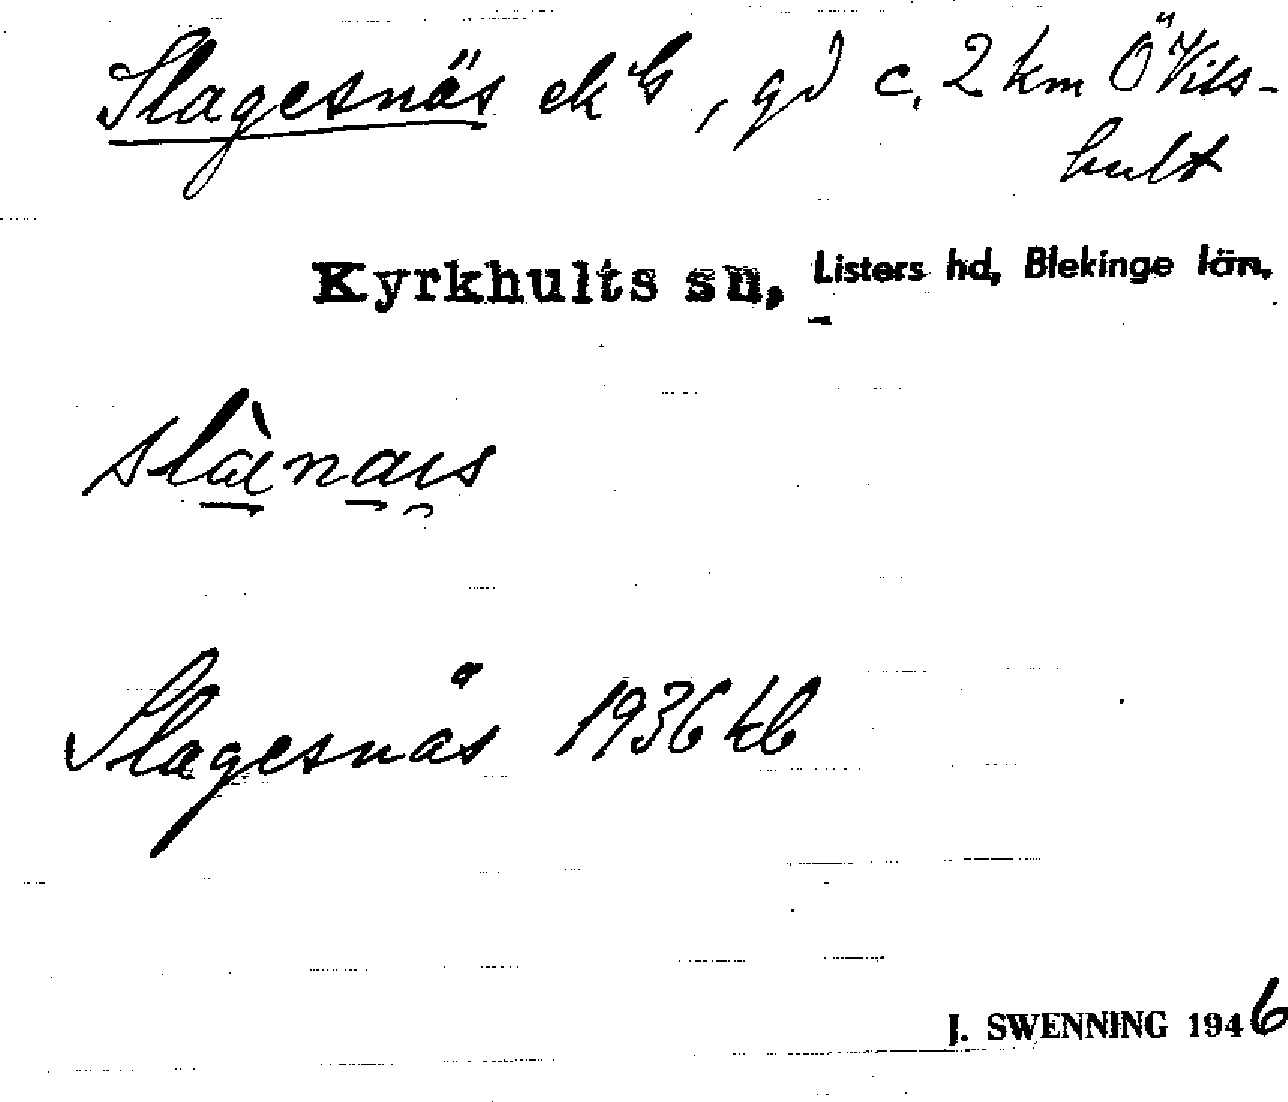 Slagesnäs ek bl, gd c. 2 km Ö Vils-
hult
Kyrkhults sn, Listers hd, Blekinge län.
slànais
Slagesnäs 1936 kb
J. SWENNING 1946